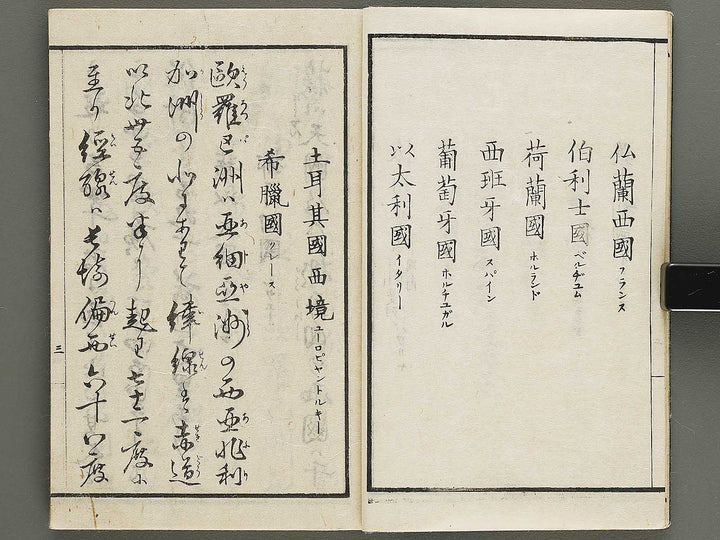 仏蘭西國 フランス
伯利士國 ベルヂユム
荷蘭國 ホルランド
西班牙國 スパイン
葡萄牙國 ホルチユガル
以太利國 イタリー
土耳其國西境 ユーロピヤントルキー
希臘國 グレース
歐羅巴洲ハ亜細亜洲の西亜非利
加洲の北に
緯線ハ赤道
以北 度 起り七十一度に
至り経線ハ 偏西六十八度
三